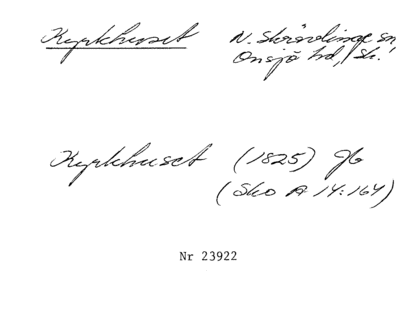 Kyrkhuset N. Skrävlinge sn,
Onsjö hd, Sk.
Kyrkhuset (1825) gb
(Sko A 14:164)
Nr 23922